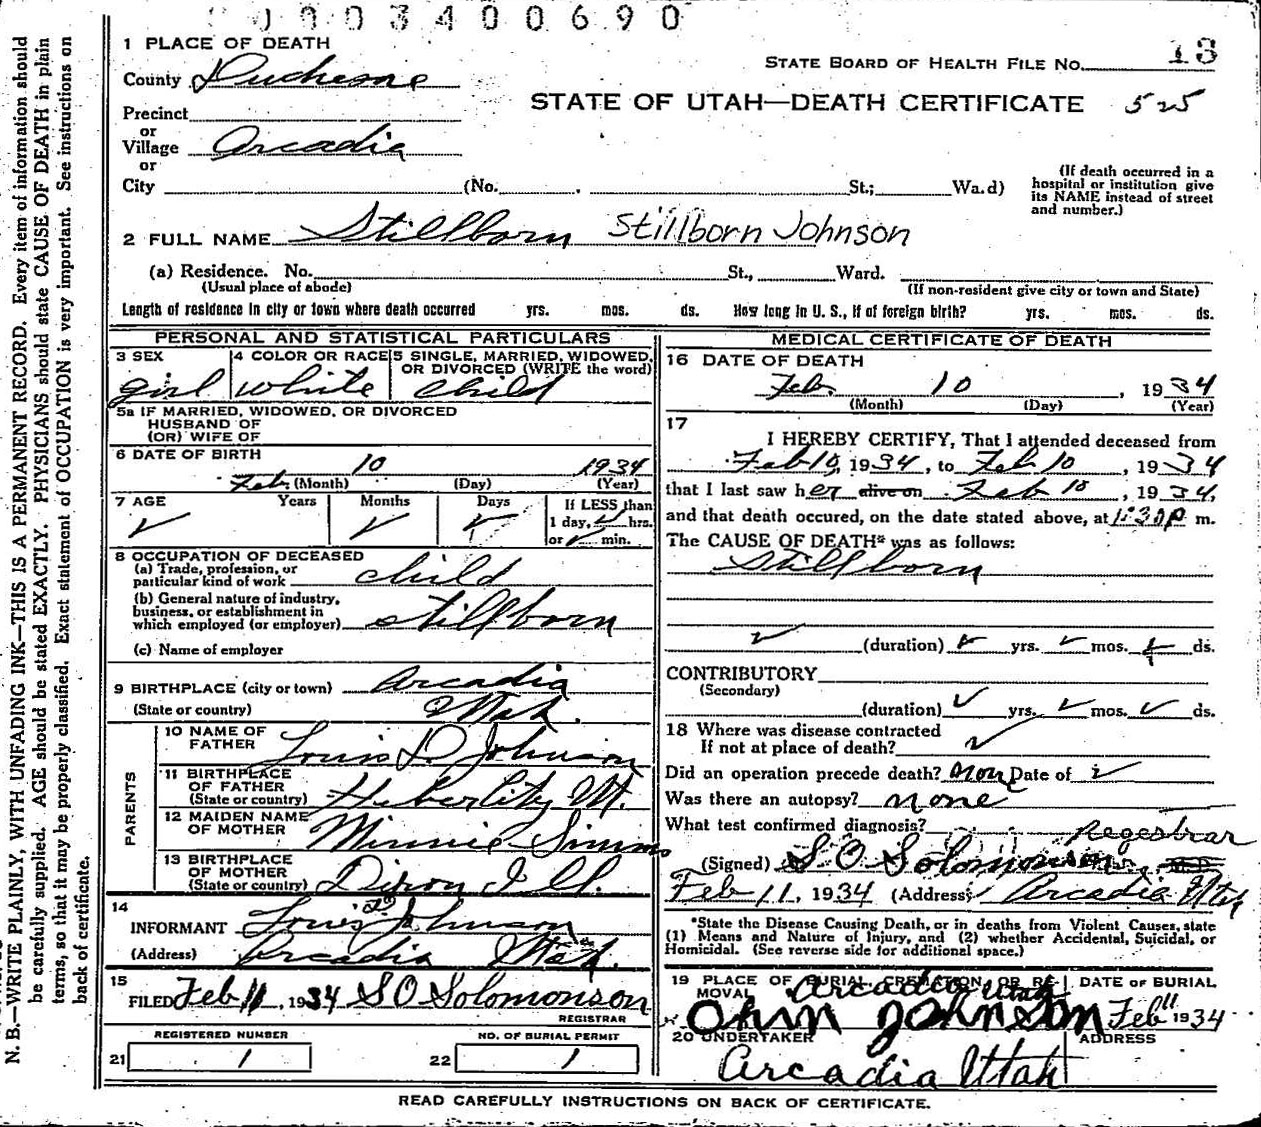 0003400690
1 PLACE OF DEATH
STATE BOARD OF HEALTH FILE No. 13
County Duchesne
STATE OF UTAH—DEATH CERTIFICATE 525
Precinct
or
Village Arcadia
or
City (No. St.; Wa.d)
(If death occurred in a hospital or institution give its NAME instead of street and number.)
2 FULL NAME Stillborn Stillborn Johnson
(a) Residence. No. St., Ward.
(Usual place of abode) (If non-resident give city or town and State)
Length of residence in city or town where death occurred yrs. mos. ds. How long in U. S., if of foreign birth? yrs. mos. ds.
PERSONAL AND STATISTICAL PARTICULARS
3 SEX 4 COLOR OR RACE 5 SINGLE, MARRIED, WIDOWED,
OR DIVORCED (WRITE the word)
girl white child
5a IF MARRIED, WIDOWED, OR DIVORCED
HUSBAND OF
(OR) WIFE OF
6 DATE OF BIRTH
Feb. 10 1934
(Month) (Day) (Year)
7 AGE Years Months Days If LESS than
1 day, hrs.
or min.
8 OCCUPATION OF DECEASED
(a) Trade, profession, or
particular kind of work child
(b) General nature of industry,
business, or establishment in
which employed (or employer) stillborn
(c) Name of employer
9 BIRTHPLACE (city or town) Arcadia
(State or country) Utah.
PARENTS
10 NAME OF
FATHER Louis D. Johnson
11 BIRTHPLACE
OF FATHER
(State or country) Heber City Ut.
12 MAIDEN NAME
OF MOTHER Minnie Simms
13 BIRTHPLACE
OF MOTHER
(State or country) Dixon Ill.
14
INFORMANT Louis D. Johnson
(Address) Arcadia Utah.
15
FILED Feb 11, 1934 S O Solomonson
REGISTRAR
REGISTERED NUMBER NO. OF BURIAL PERMIT
21 1 22 1
MEDICAL CERTIFICATE OF DEATH
16 DATE OF DEATH
Feb. 10, 1934
(Month) (Day) (Year)
17
I HEREBY CERTIFY, That I attended deceased from
Feb 10, 1934, to Feb 10, 1934
that I last saw her alive on Feb 10, 1934,
and that death occured, on the date stated above, at 1:30 P m.
The CAUSE OF DEATH* was as follows:
Stillborn
(duration) yrs. mos. ds.
CONTRIBUTORY
(Secondary)
(duration) yrs. mos. ds.
18 Where was disease contracted
If not at place of death?
Did an operation precede death? non Date of
Was there an autopsy? none
What test confirmed diagnosis?
Regestrar
(Signed) S O Solomonson, M.D.
Feb 11, 1934 (Address) Arcadia Utah
*State the Disease Causing Death, or in deaths from Violent Causes, state
(1) Means and Nature of Injury, and (2) whether Accidental, Suicidal, or
Homicidal. (See reverse side for additional space.)
19 PLACE OF BURIAL, CREMATION, OR RE-
MOVAL Arcadia Utah
DATE OF BURIAL
Feb 11 1934
Orin Johnson
20 UNDERTAKER ADDRESS
Arcadia Utah
READ CAREFULLY INSTRUCTIONS ON BACK OF CERTIFICATE.
N. B.—WRITE PLAINLY, WITH UNFADING INK—THIS IS A PERMANENT RECORD. Every item of information should
be carefully supplied. AGE should be stated EXACTLY. PHYSICIANS should state CAUSE OF DEATH in plain
terms, so that it may be properly classified. Exact statement of OCCUPATION is very important. See instructions on
back of certificate.